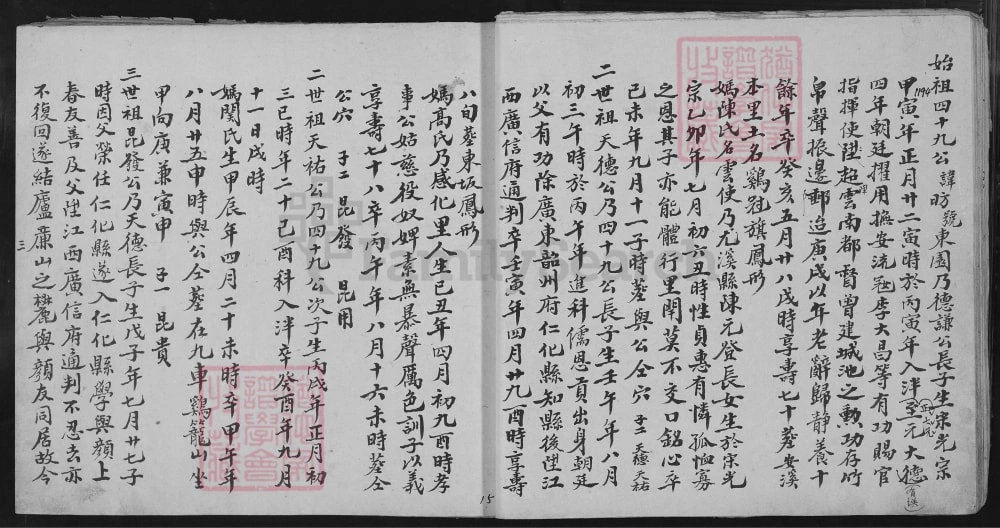 始祖四十九公諱昉號東園乃德謙公長子生宋光宗
甲寅年正月廿二寅時於丙寅年入泮至元大德
1194
四年朝廷擢用撫安流寇李大昌等有功賜官
指揮使陞超雲南都督曾建城池之勲功存竹
帛聲振邊郵造庚戌以年老辭歸靜養十
餘年卒癸亥五月廿八戌時享壽七十葬安溪
本里土名鷄冠旗鳳形
媽陳氏名雲使乃尤溪縣陳元登長女生於宋光
宗乙卯年七月初六丑時性貞惠有憐孤恤寡
之恩其子亦能體行里閈莫不交口銘心卒
己未年九月十一子時葬與公仝穴 子二 天德 天祐
二世祖天德公乃四十九公長子生壬午年八月
初三午時於丙午年進科儒恩貢出身朝廷
以父有功除廣東韶州府仁化縣知縣後陞江
西廣信府通判卒壬寅年四月廿九酉時享壽
八旬葬東坂鳳形
媽髙氏乃感化里人生己丑年四月初九酉時孝
事公姑慈役奴婢素無暴聲厲色訓子以義
享壽七十八卒丙午年八月十六未時葬仝
公穴 子二 昆發 昆用
二世祖天祐公乃四十九公次子生丙戌年正月初
三巳時年二十己酉科入泮卒癸酉年九月
十一日戌時
媽関氏生甲辰年四月二十未時卒甲午年
八月廿五申時與公仝葬在九車鷄籠山坐
甲向庚兼寅申 子一 昆貴
三世祖昆發公乃天德長子生戊子年七月廿七子
時因父榮任仁化縣遂入仁化縣學與顏上
春友善及父陞江西廣信府通判不忍去亦
不復回遂結廬蔴山之麓與顏友同居故今
三
15
FamilySearch